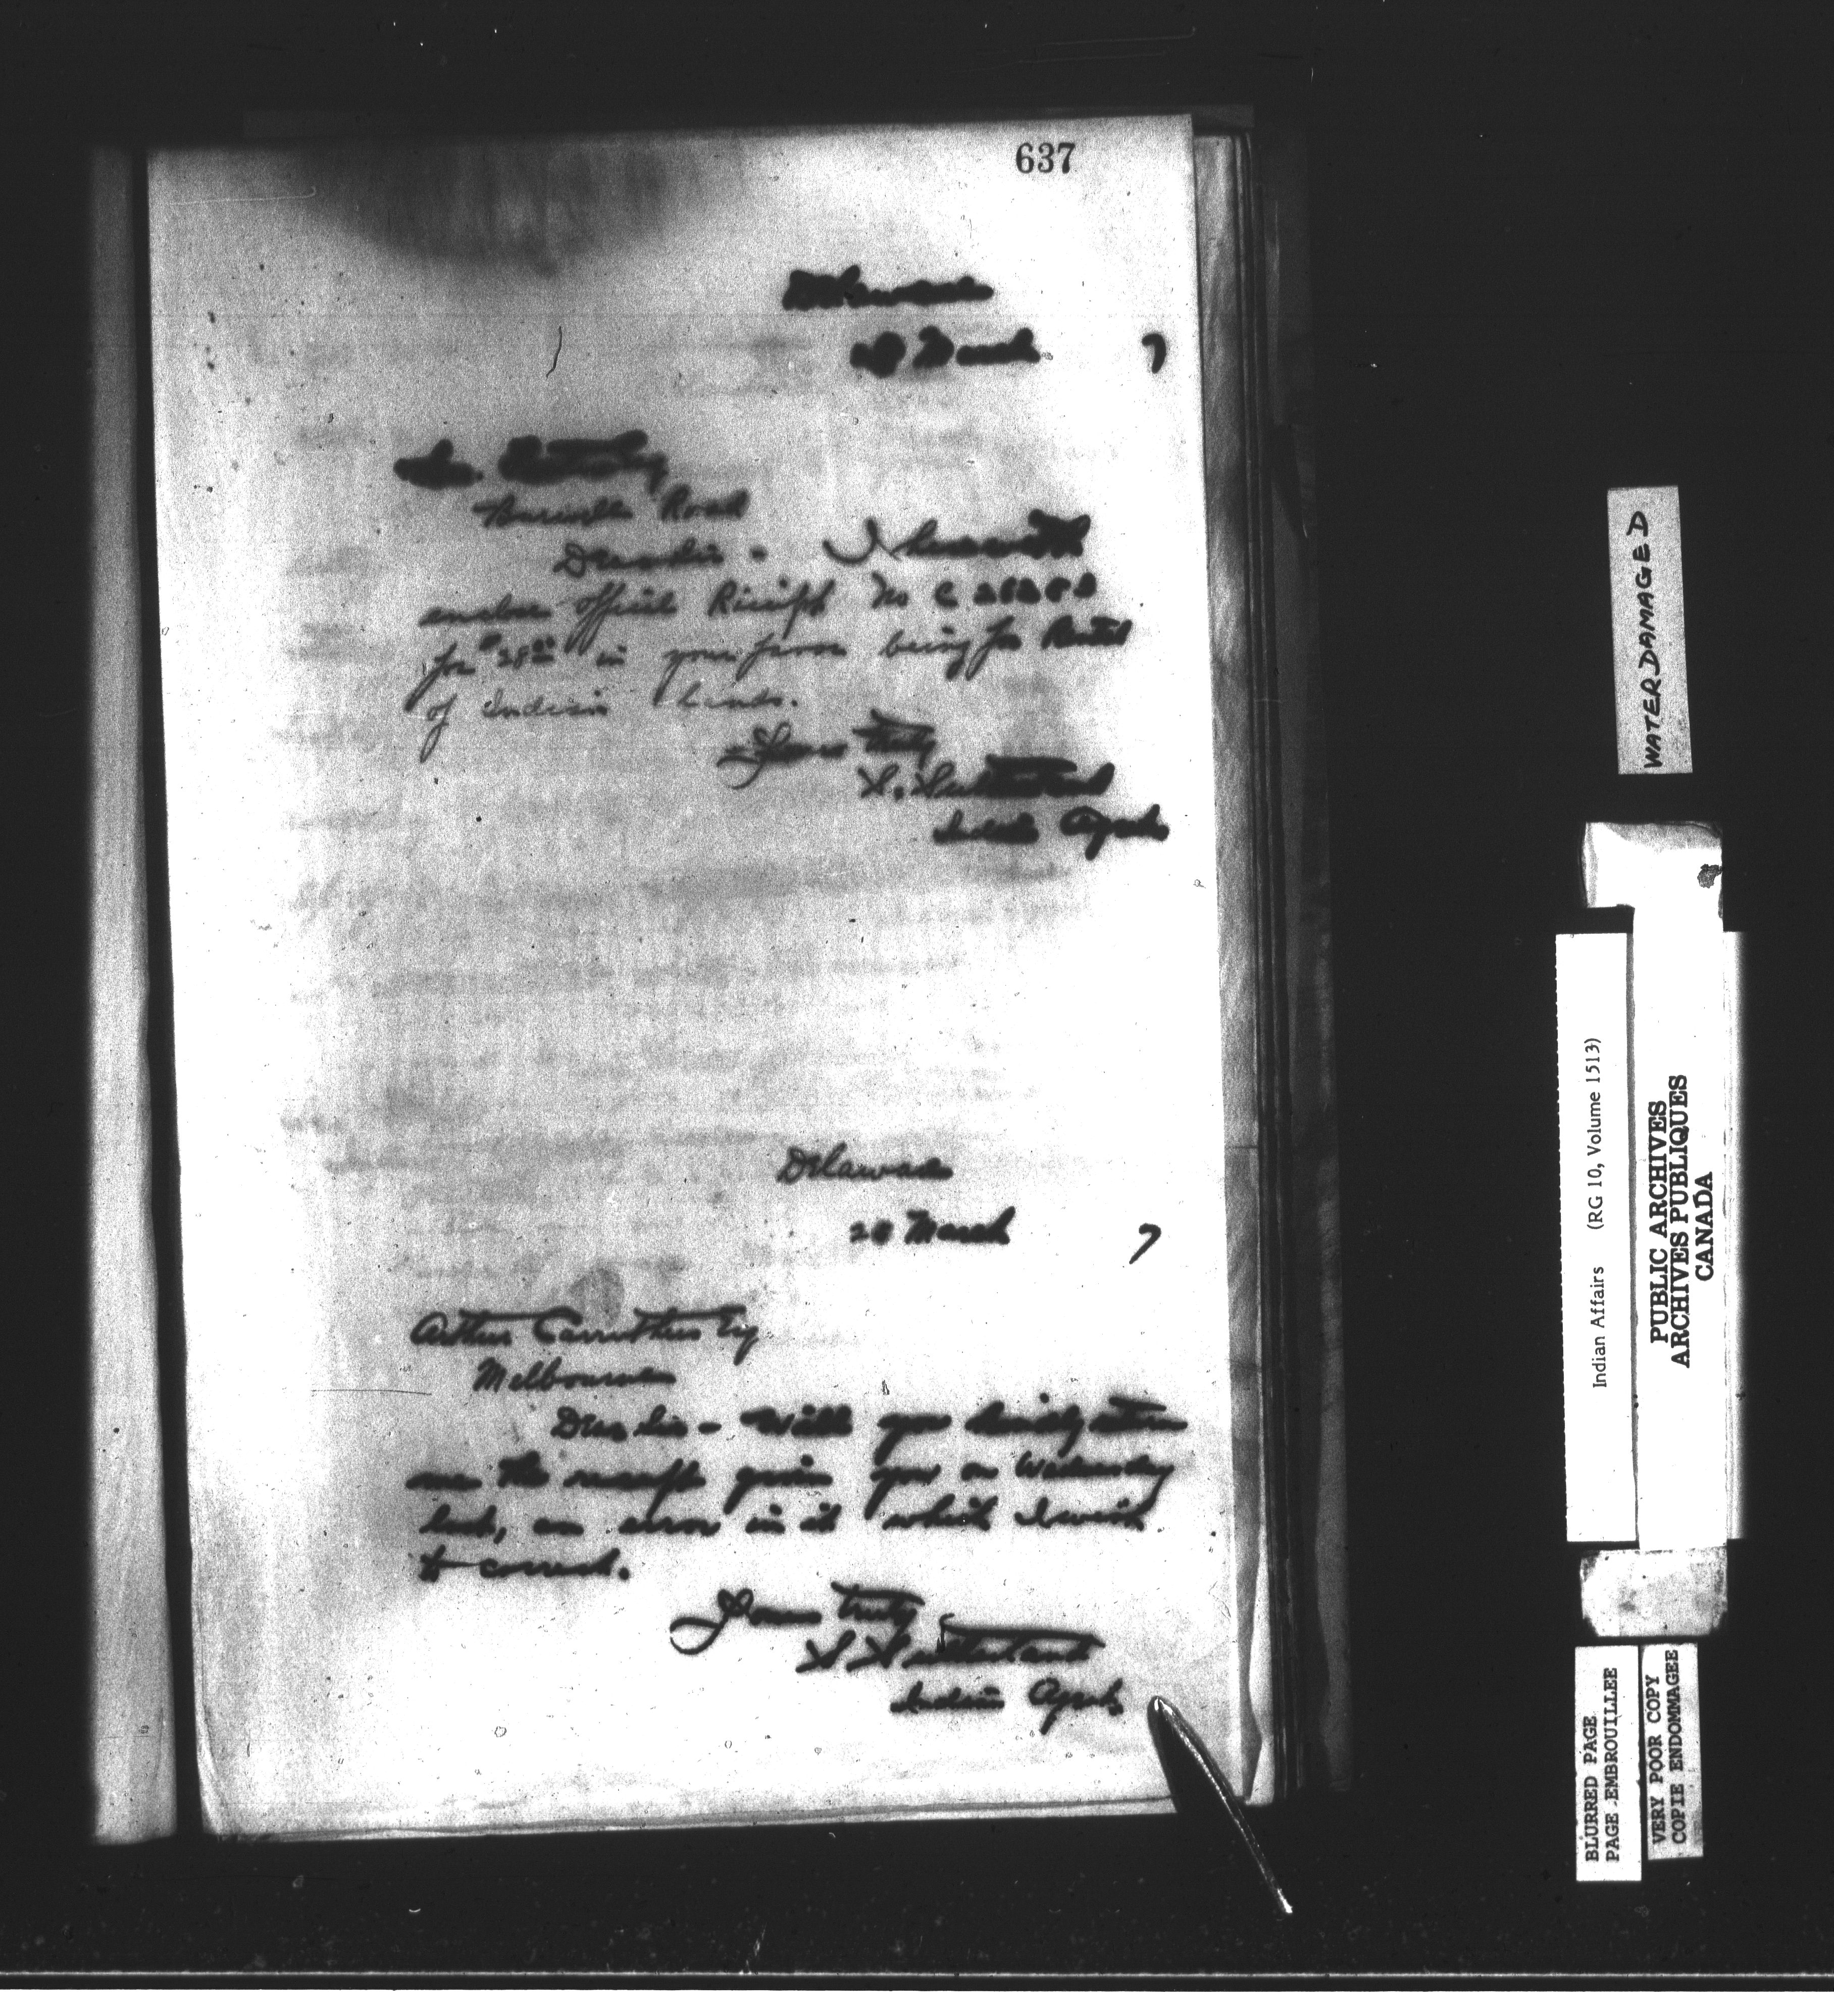 637
Delaware
28 March 7
Road
Dear Sir - I herewith
enclose official Receipt No C
for $ in your favor being for Rental
of Indian Lands.
Yours truly
S. Sutherland
Indian Agent
Delaware
28 March 7
Arthur Carruthers Esq
Melbourne
Dear Sir - Will you kindly return
me the receipt given you on Wednesday
last, an error in it which I wish
to correct.
Yours truly
S Sutherland
Indian Agent
WATER DAMAGED
Indian Affairs (RG 10, Volume 1513)
PUBLIC ARCHIVES
ARCHIVES PUBLIQUES
CANADA
BLURRED PAGE
PAGE EMBROUILLEE
VERY POOR COPY
COPIE ENDOMMAGEE